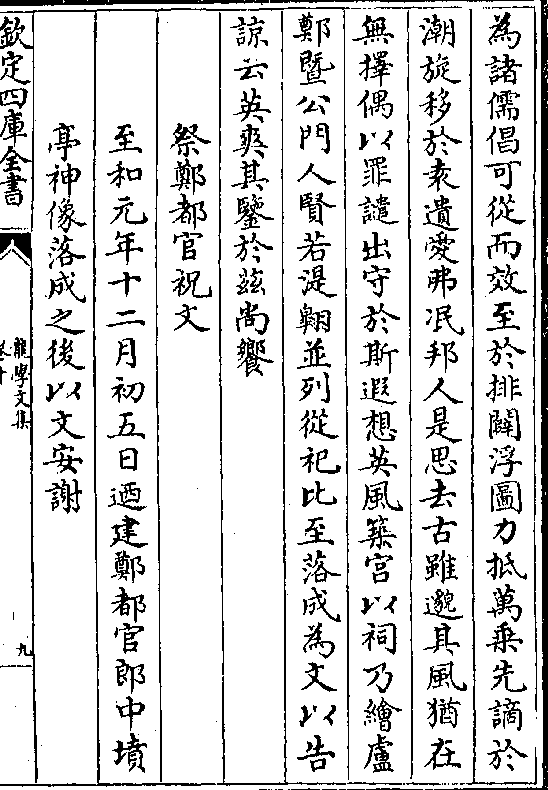 為諸儒倡可從而效至於排闢浮圖力抵萬乗先謫於
潮旋移於袁遺愛弗泯邦人是思去古雖邈其風猶在
無擇偶以罪譴出守於斯遐想英風築宫以祠乃繪盧
鄭暨公門人賢若湜翺並列從祀比至落成為文以告
諒云英爽其鑒於兹尚饗
祭鄭都官祝文
至和元年十二月初五日廼建鄭都官郎中墳
亭神像落成之後以文安謝
欽定四庫全書
龍學文集
卷十
九